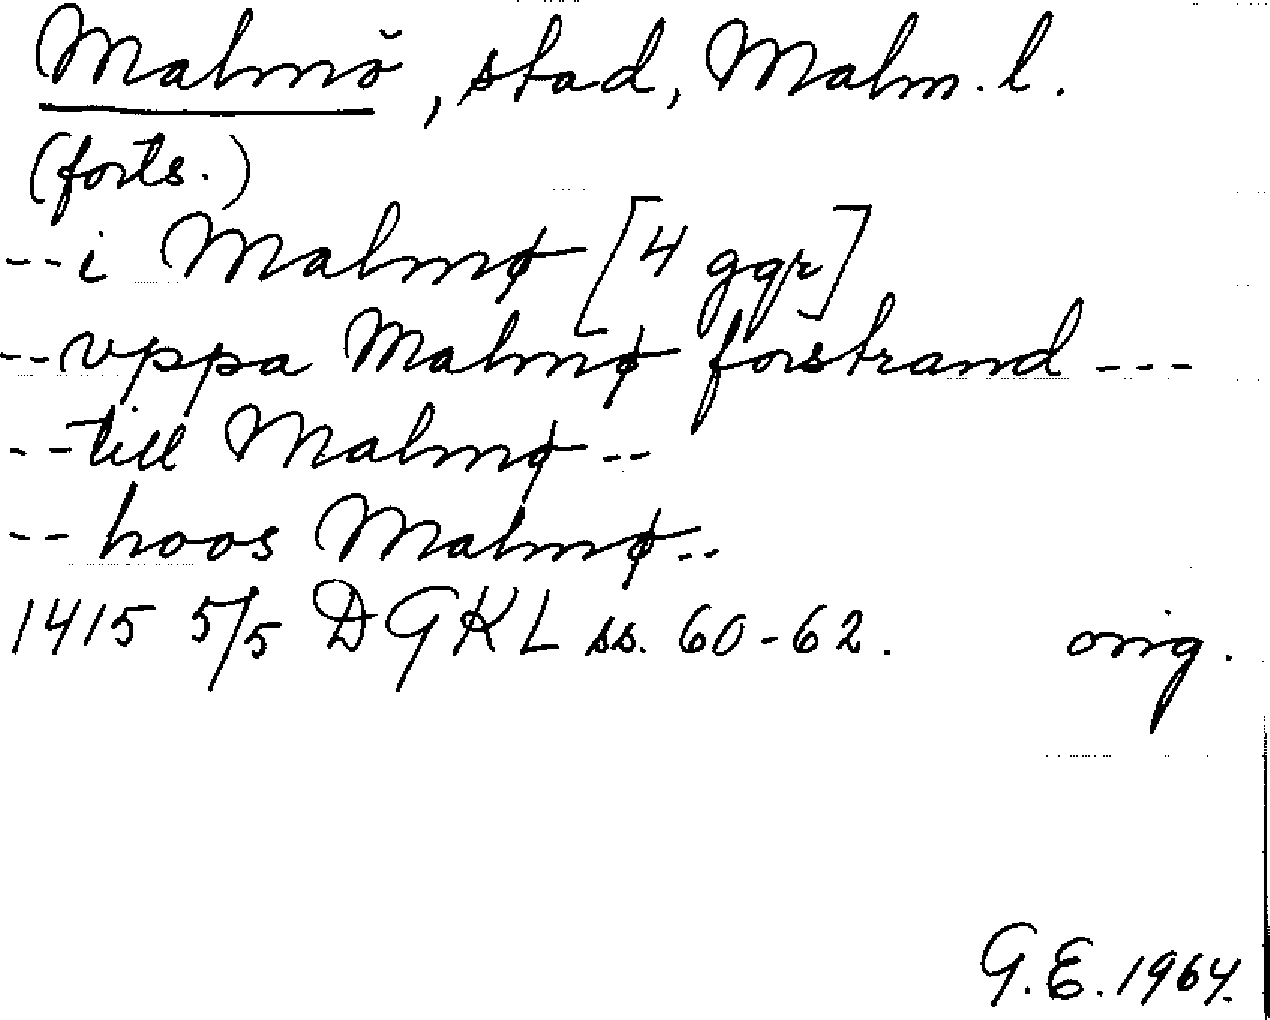 Malmö, stad, Malm. l.
(forts.)
--i Malmø [4 ggr]
--vppa Malmø forstrand ---
--till Malmø --
-- hoos Malmø--
1415 5/5 DGKL ss. 60-62. orig.
G.E. 1964.